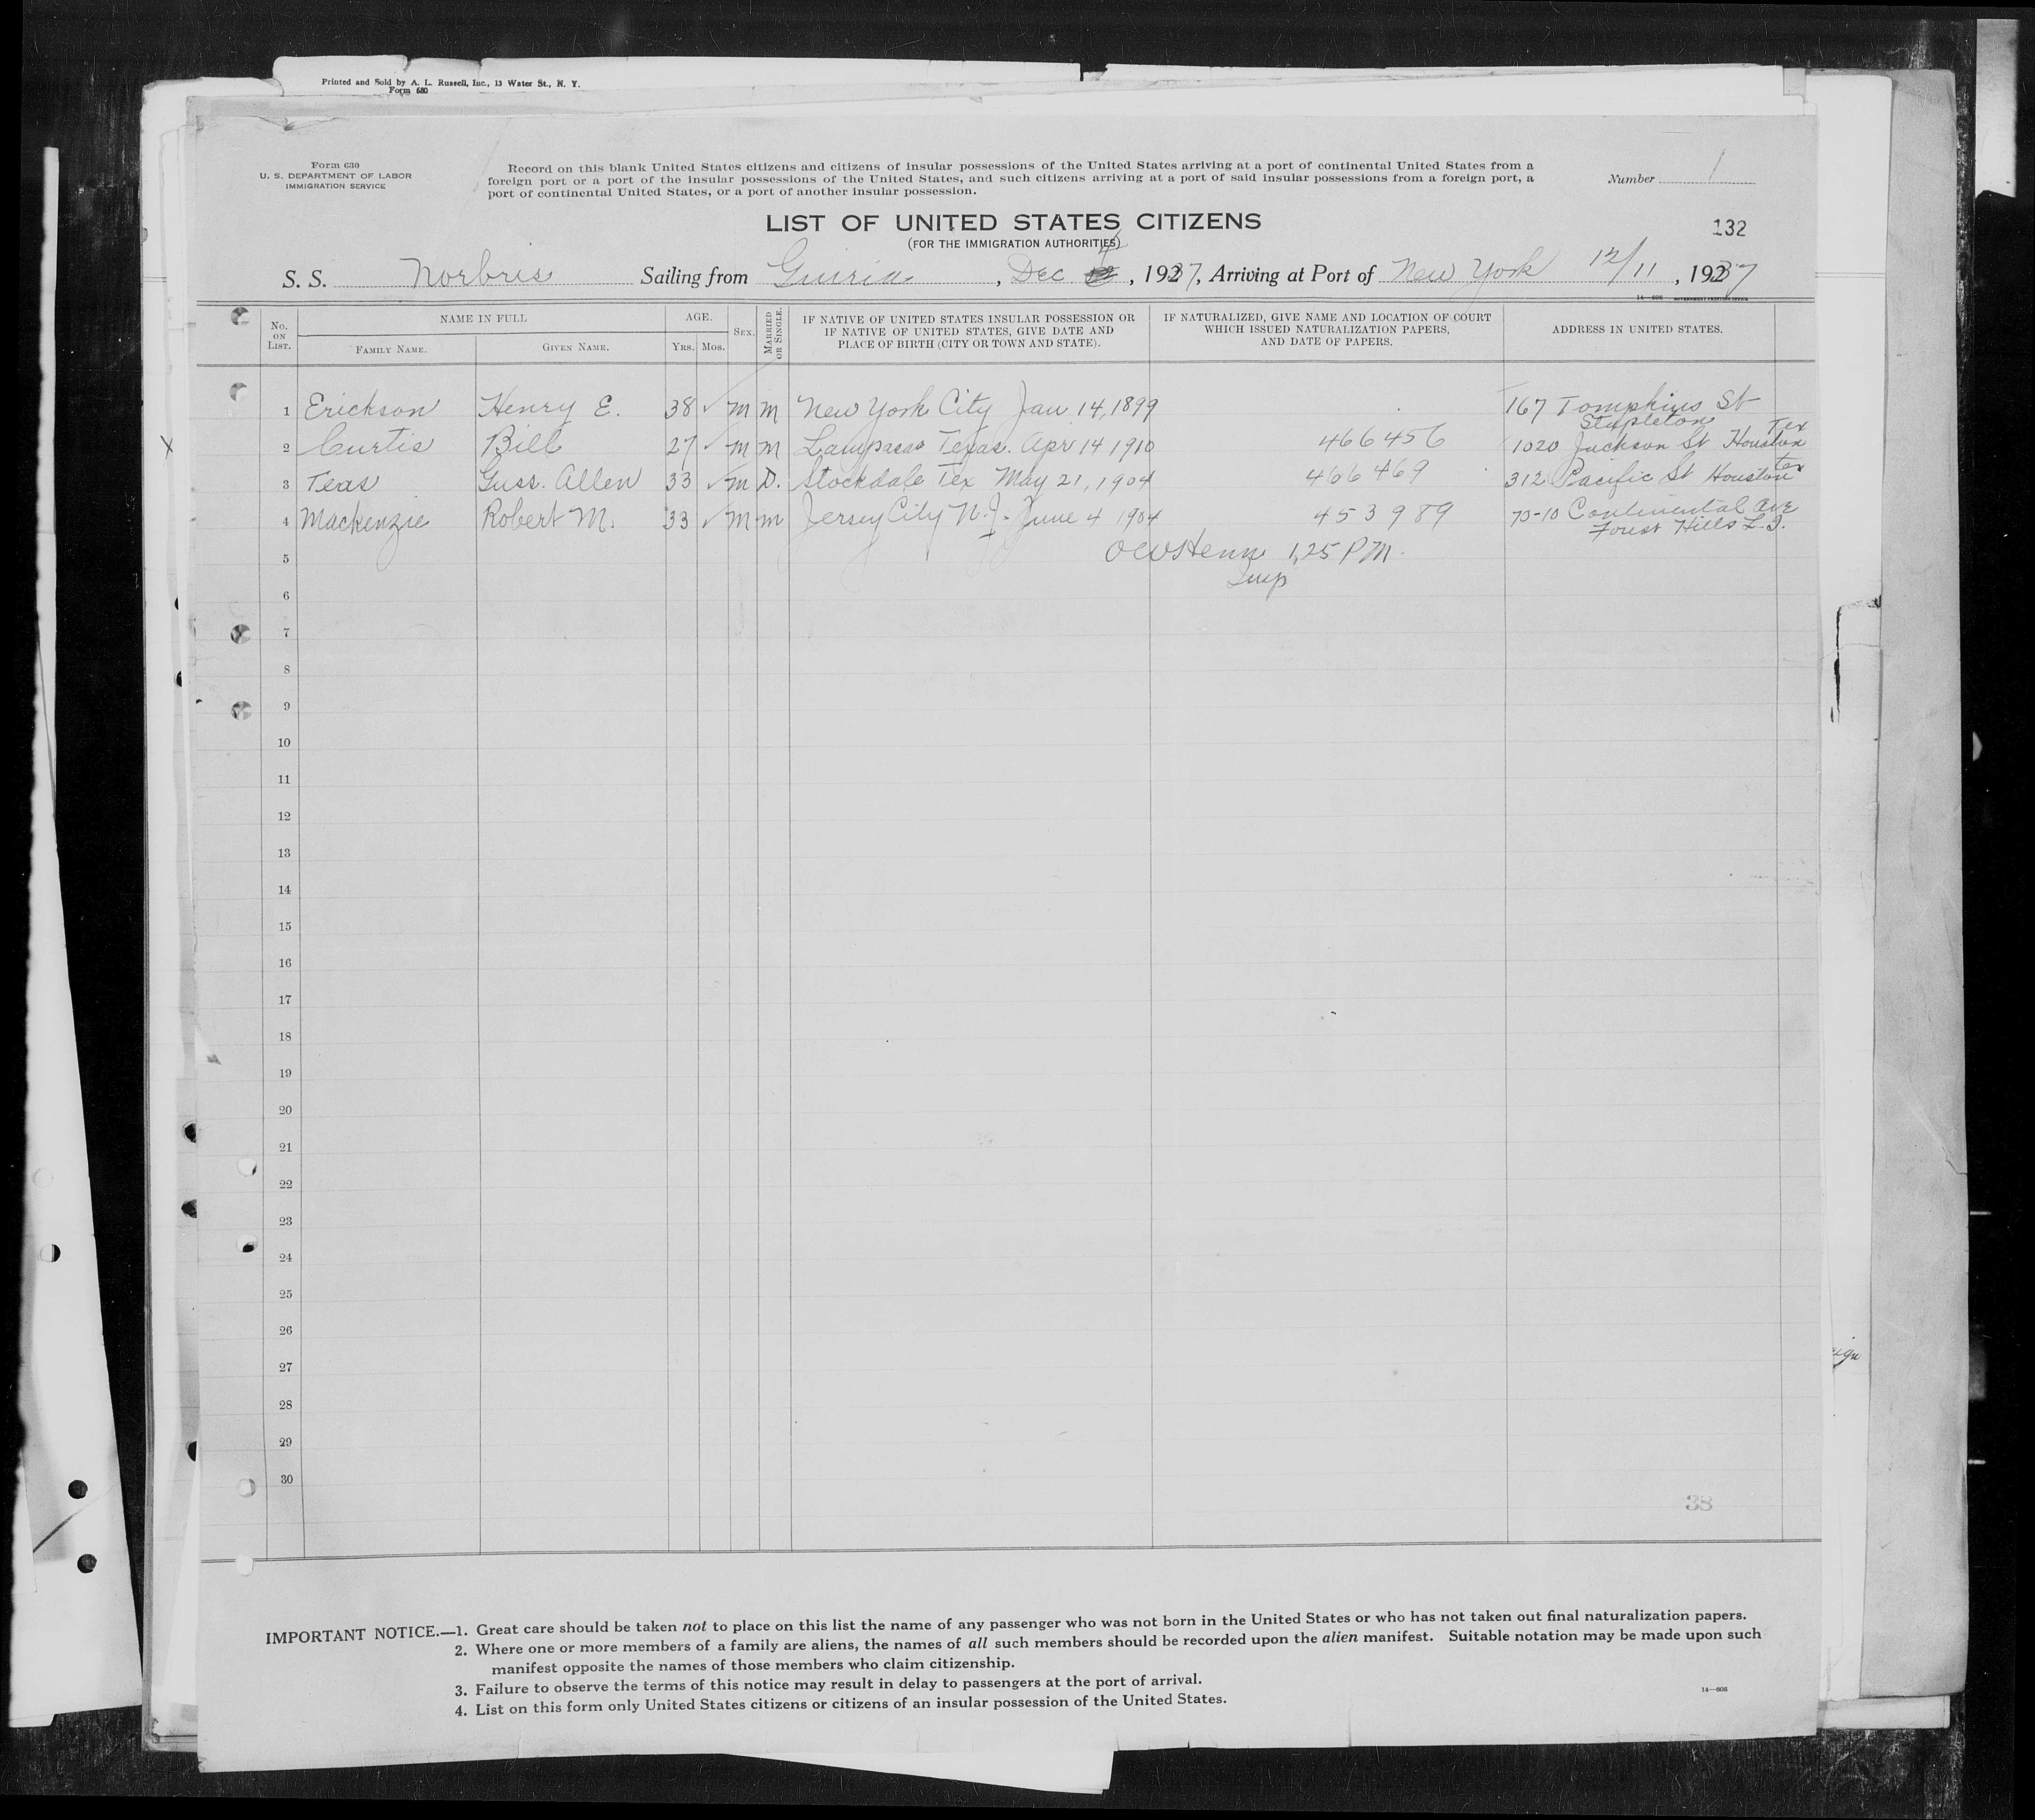 Printed and Sold by A. L. Russell, Inc., 13 Water St., N. Y.
Form 680
Form 630
U. S. DEPARTMENT OF LABOR
IMMIGRATION SERVICE
Record on this blank United States citizens and citizens of insular possessions of the United States arriving at a port of continental United States from a
foreign port or a port of the insular possessions of the United States, and such citizens arriving at a port of said insular possessions from a foreign port, a
port of continental United States, or a port of another insular possession.
Number 1
LIST OF UNITED STATES CITIZENS
132
(FOR THE IMMIGRATION AUTHORITIES)
S. S. Norbris Sailing from Guiria, Dec , 1937, Arriving at Port of New York 12/11, 1937
14—608 GOVERNMENT PRINTING OFFICE
No. ON LIST. NAME IN FULL FAMILY NAME. GIVEN NAME. AGE. YRS. MOS. SEX. MARRIED OR SINGLE. IF NATIVE OF UNITED STATES INSULAR POSSESSION OR IF NATIVE OF UNITED STATES, GIVE DATE AND PLACE OF BIRTH (CITY OR TOWN AND STATE). IF NATURALIZED, GIVE NAME AND LOCATION OF COURT WHICH ISSUED NATURALIZATION PAPERS, AND DATE OF PAPERS. ADDRESS IN UNITED STATES.
1 Erickson Henry E. 38 ✓ m m New York City Jan 14, 1899 167 Tompkins St
Stapleton
X 2 Curtis Bill 27 ✓ m m Lampasas Texas. Apr 14 1910 466456 1020 Jackson St Houston Tex
3 Teas Guss. Allen 33 ✓ m D. Stockdale Tex May 21, 1904 466469 312 Pacific St Houston tex
4 Mackenzie Robert M. 33 ✓ m m Jersey City N.J. June 4 1904 453989 70-10 Continental ave
Forest Hills L.I.
5 1,25 P M.
Insp
6
7
8
9
10
11
12
13
14
15
16
17
18
19
20
21
22
23
24
25
26
27
28
29
30
38
IMPORTANT NOTICE.—1. Great care should be taken not to place on this list the name of any passenger who was not born in the United States or who has not taken out final naturalization papers.
2. Where one or more members of a family are aliens, the names of all such members should be recorded upon the alien manifest. Suitable notation may be made upon such
manifest opposite the names of those members who claim citizenship.
3. Failure to observe the terms of this notice may result in delay to passengers at the port of arrival.
4. List on this form only United States citizens or citizens of an insular possession of the United States.
14—608